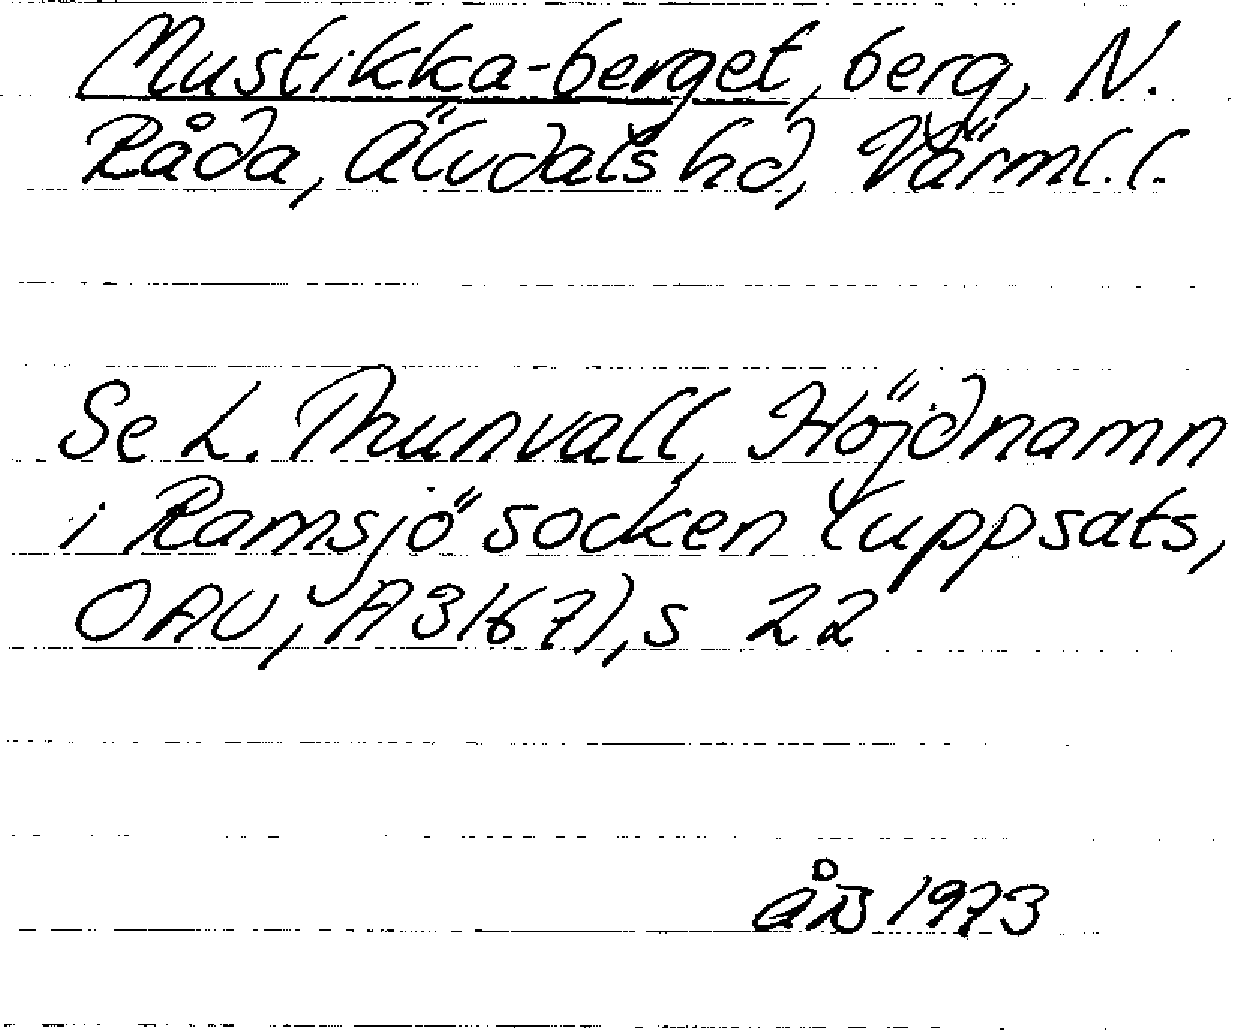 Mustikka-berget, berg, N.
Råda, Älvdals hd, Värml. l.
Se L. Thunvall, Höjdnamn
i Ramsjö socken (uppsats,
OAU, A3167), s 22
1973